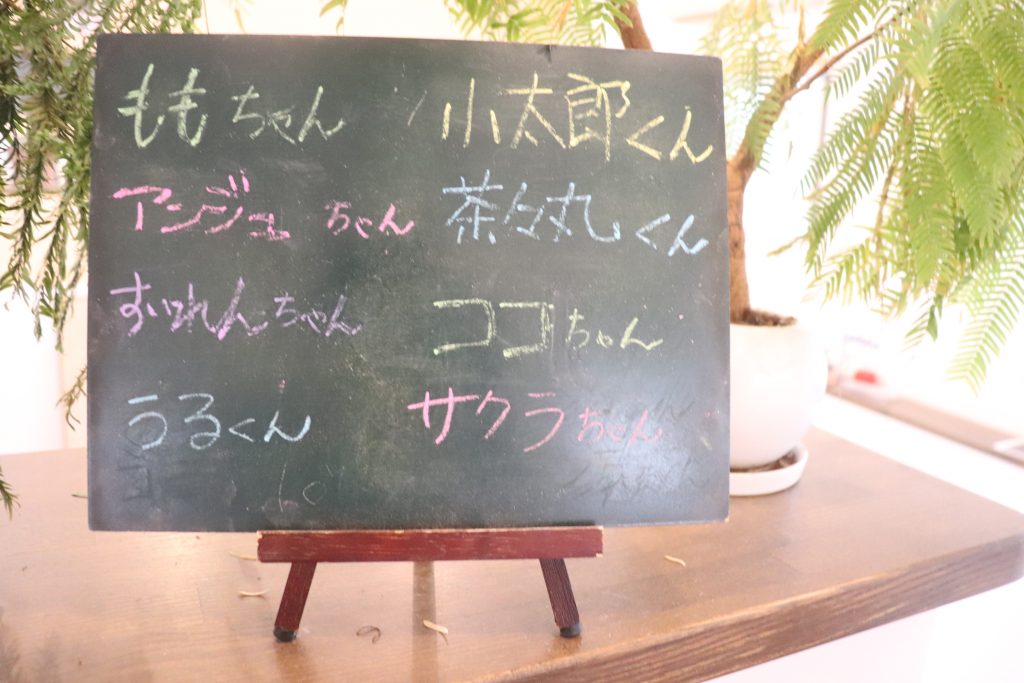 ももちゃん
アンジュちゃん
すいれんちゃん
うるくん
小太郎くん
茶々丸くん
ココちゃん
サクラちゃん